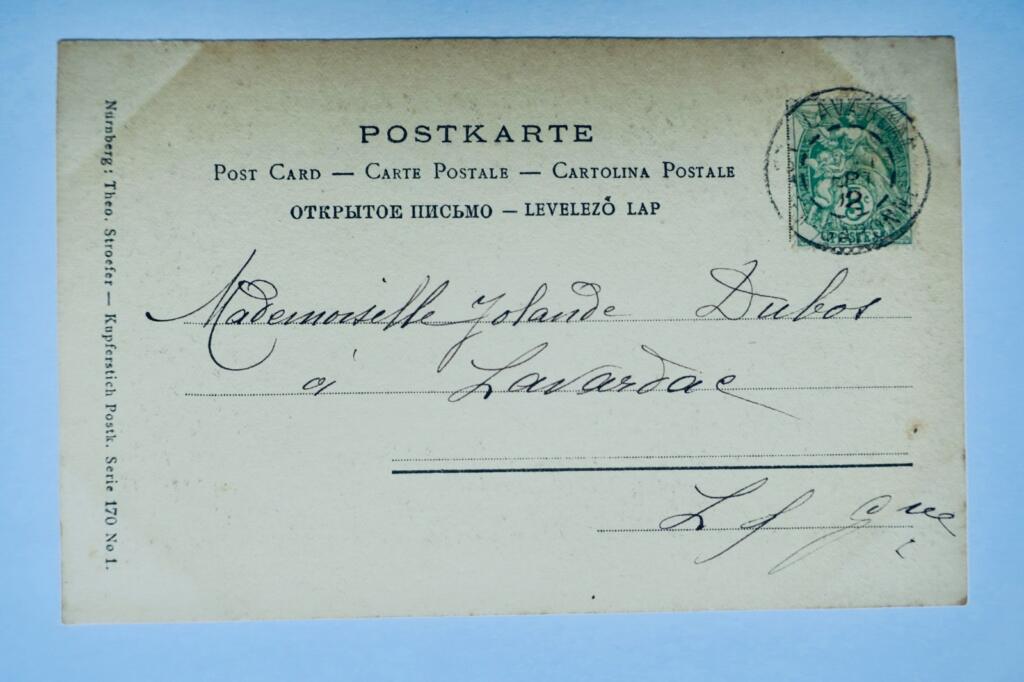 POSTKARTE
POST CARD — CARTE POSTALE — CARTOLINA POSTALE
ОТКРЫТОЕ ПИСЬМО — LEVELEZŐ LAP
Mademoiselle Jolande Dubos
à Lavardac
L & Gne
Nürnberg: Theo. Stroefer — Kupferstich Postk. Serie 170 No 1.